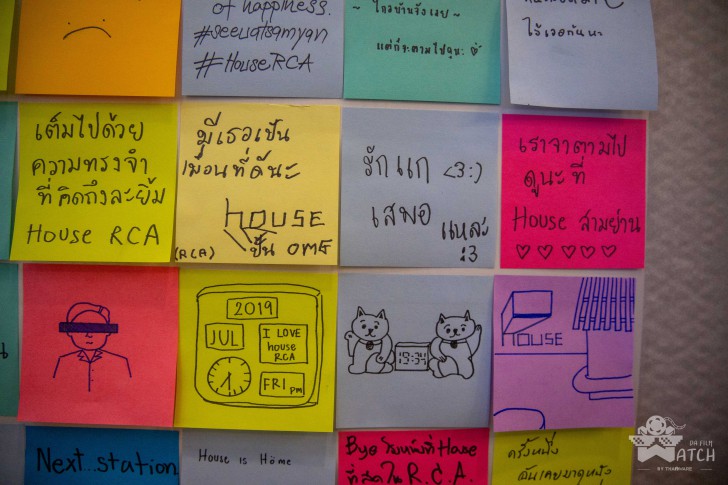 of happiness.
#seeuatsamyan
#HouseRCA
~ ไกลบ้านจังเลย ~
แต่ก็จะตามไปดูนะ ♡
ไว้เจอกันนะ
เต็มไปด้วย
ความทรงจำ
ที่คิดถึงละยิ้ม
House RCA
มีเธอเป็น
เพื่อนที่ดีนะ
HOUSE
(RCA)
รักแก <3:)
เสมอ แหละ
:3
เราจาตามไป
ดูนะที่
House สามย่าน
♡ ♡ ♡ ♡ ♡
2019
JUL
I LOVE
house
RCA
FRI PM
19:34
HOUSE
Next..station
House is Home
Bye โรงหนังที่ House
R.C.A.
ครั้งหนึ่ง
ฉันเคยมาดูหนัง
DA FILM
WATCH
BY THAIWARE